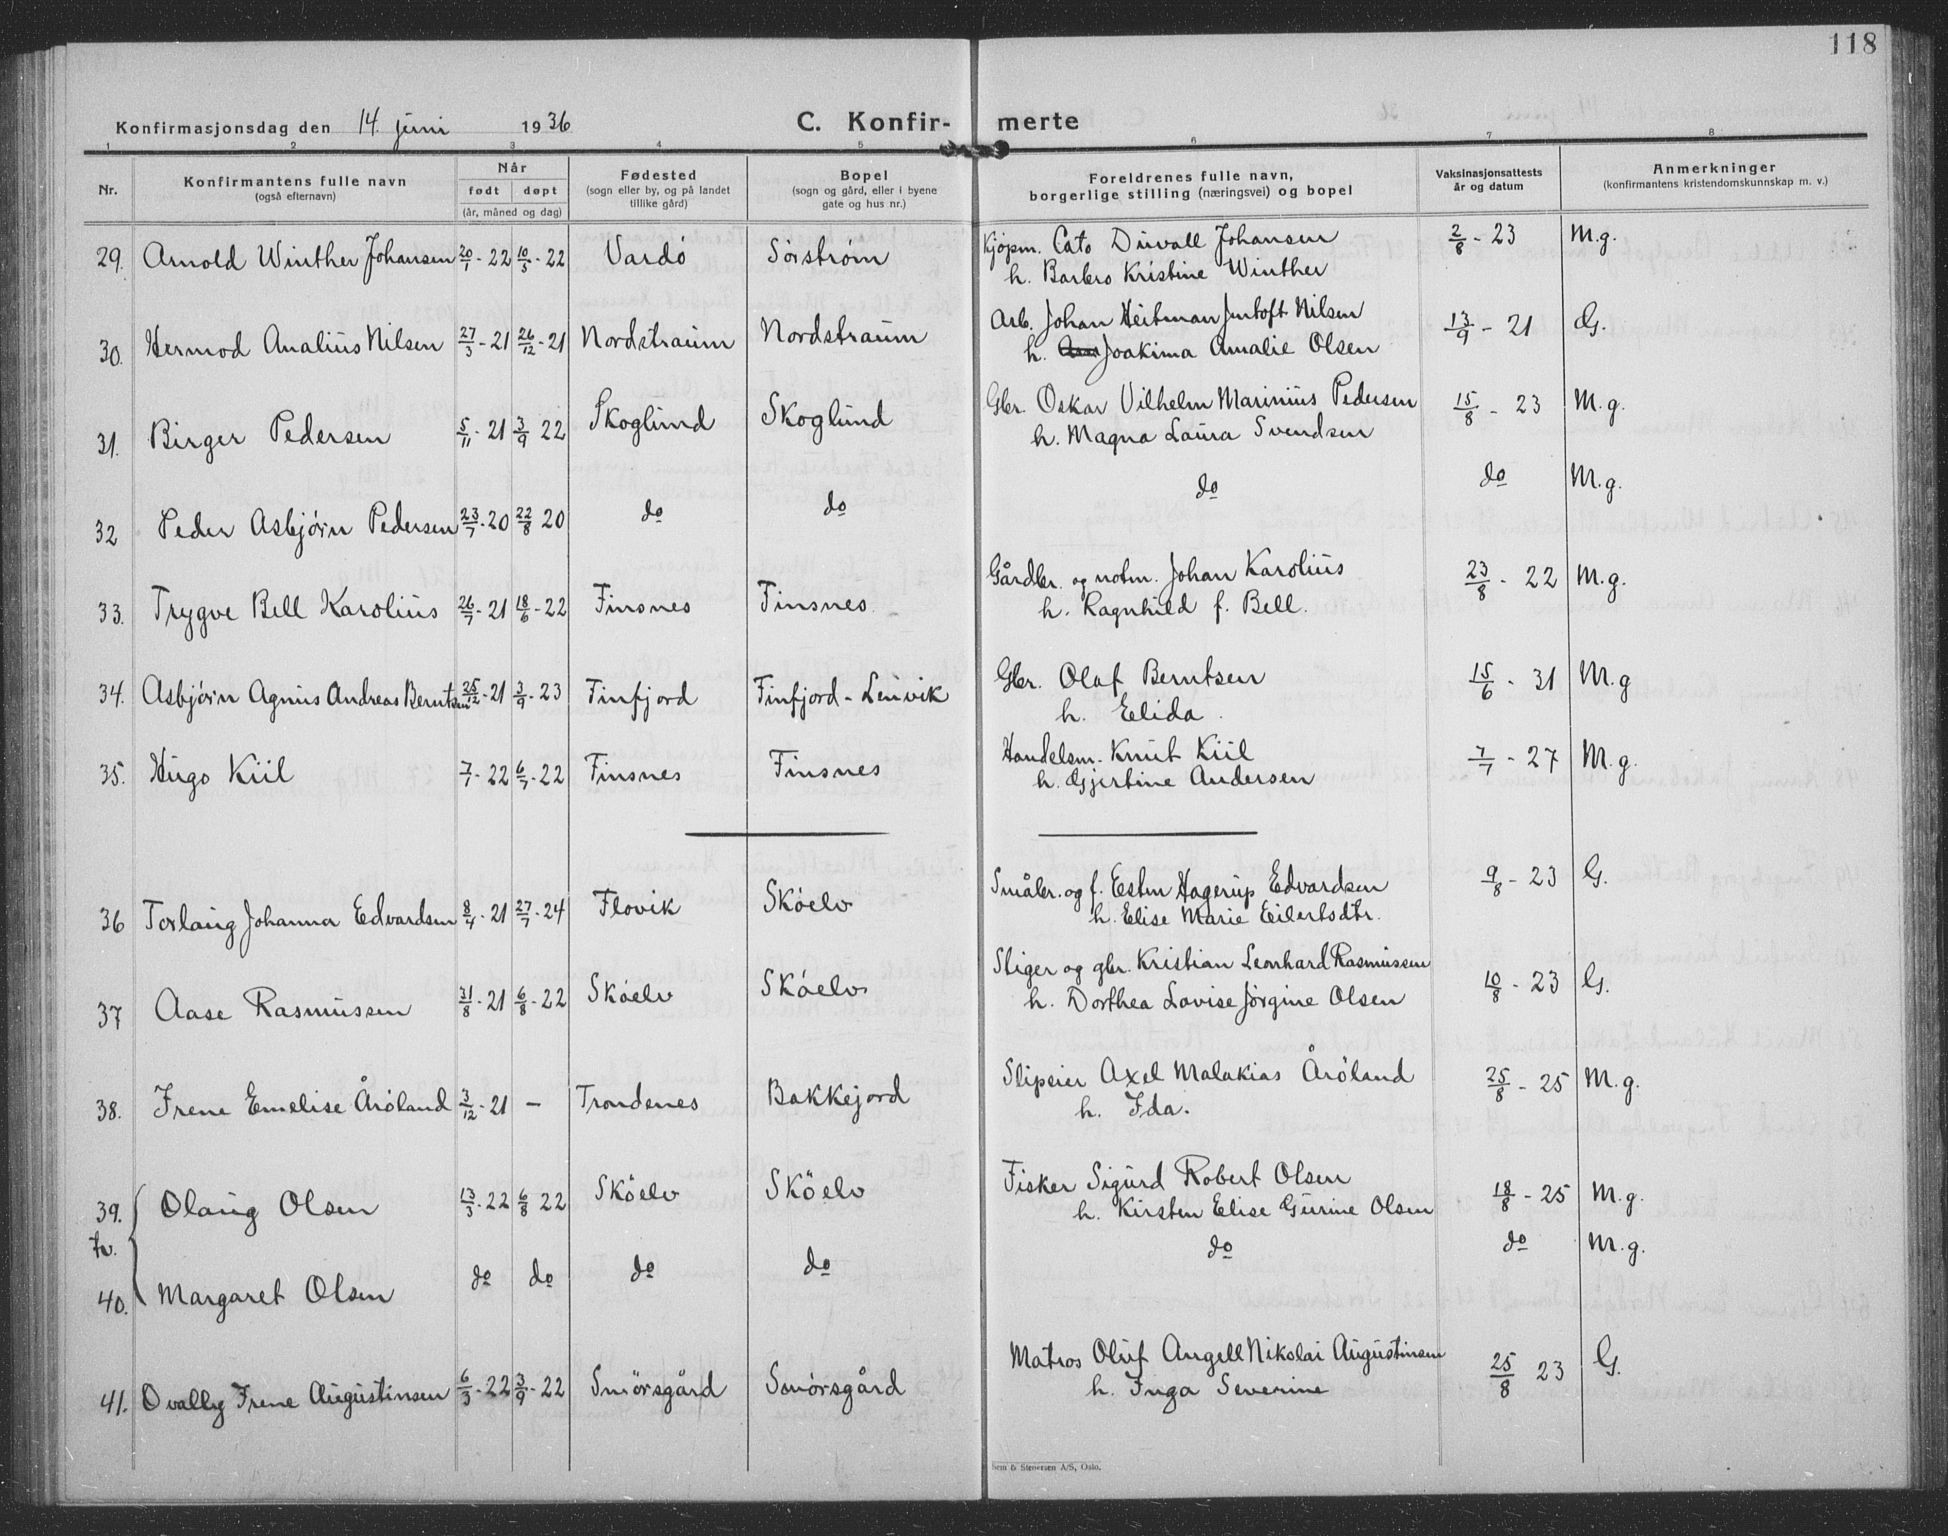 118
Konfirmasjonsdag den 14. juni 1936
C. Konfir- merte
1 2 3 4 5 6 7 8
Nr. Konfirmantens fulle navn (også efternavn) Når født døpt (år, måned og dag) Fødested (sogn eller by, og på landet tillike gård) Bopel (sogn og gård, eller i byene gate og hus nr.) Foreldrenes fulle navn, borgerlige stilling (næringsvei) og bopel Vaksinasjonsattests år og datum Anmerkninger (konfirmantens kristendomskunnskap m. v.)
29. Arnold Winther Johansen 20/1 - 22 10/5 - 22 Vardö Sörstrøm Kjöpm. Cato Duvall Johansen 2/8 - 23 M.g.
h. Barbro Kristine Winther
30. Hermod Analius Nilsen 27/3 - 21 26/12 - 21 Nordstraum Nordstraum Arb. Johan Heitman Jentoft Nilsen 13/9 - 21 G.
h. Joakima Amalie Olsen
31. Birger Pedersen 5/11 - 21 3/9 22 Skoglund Skoglund Gbr. Oskar Vilhelm Marinius Pedersen 15/8 - 23 M.g.
h. Magna Laura Svendsen
32 Peder Asbjörn Pedersen 23/7 - 20 22/8 20 do do do do M.g.
33. Trygve Bell Karolius 26/7 - 21 18/6 - 22 Finsnes Finsnes Gårdbr. og notm. Johan Karolius 23/8 - 22 M.g.
h. Ragnhild f. Bell.
34. Asbjörn Agnus Andreas Berntsen 25/12 - 21 3/9 - 23 Finfjord Finfjord - Lenvik Gbr. Olaf Berntsen 15/6 - 31 M.g
h. Elida.
35. Hugo Kiil 7/7 - 22 6/7 - 22 Finsnes Finsnes Handelsm. Knut Kiil 7/7 - 27 M.g.
h. Gjertine Andersen
36 Torlaug Johanna Edvardsen 8/4 - 21 27/7 - 24 Flovik Sköelv Småbr. og f. Esten Hagerup Edvardsen 9/8 - 23 G.
h. Elise Marie Eilertsdtr.
37 Aase Rasmussen 31/8 - 21 6/8 - 22 Sköelv Sköelv Stiger og gbr. Kristian Leonhard Rasmussen 10/8 - 23 G.
h. Dorthea Lovise Jørgine Olsen
38. Irene Emelise Åröland 3/12 - 21 - Trondenes Bakkejord Slipeier Axel Malakias Åröland 25/8 - 25 M.g.
h. Ida.
39. Olaug Olsen 13/3 - 22 6/8 22 Sköelv Sköelv Fisker Sigurd Robert Olsen 18/8 - 25 M.g.
h. Kirsten Elise Gurine Olsen
Tv.
40. Margaret Olsen do do do do do do M.g.
41. Ovally Irene Augustinsen 6/3 - 22 3/9 - 22 Smörsgård Smörsgård Matros Oluf Angell Nikolai Augustinsen 25/8 23 G.
h. Inga Severine
Sem & Stenersen A/S, Oslo.